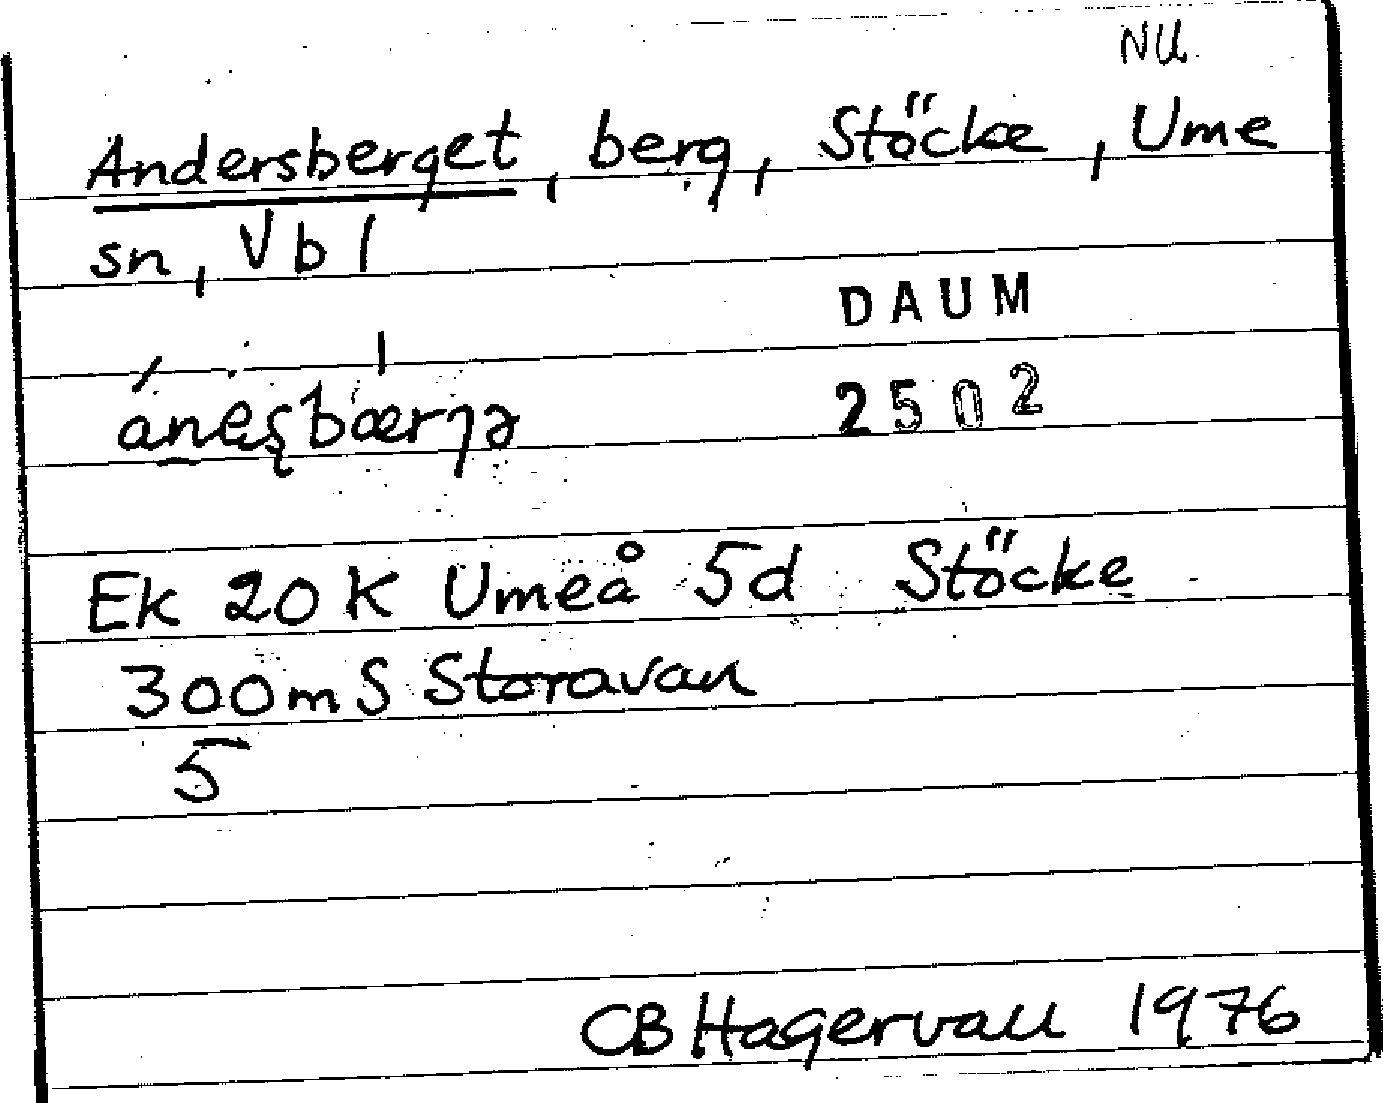 NU
Andersberget, berg, Stöcke, Ume
sn, Vbl
DAUM
2502
Ek 20K Umeå 5d Stöcke
300m S Storavan
5
CB Hagervall 1976